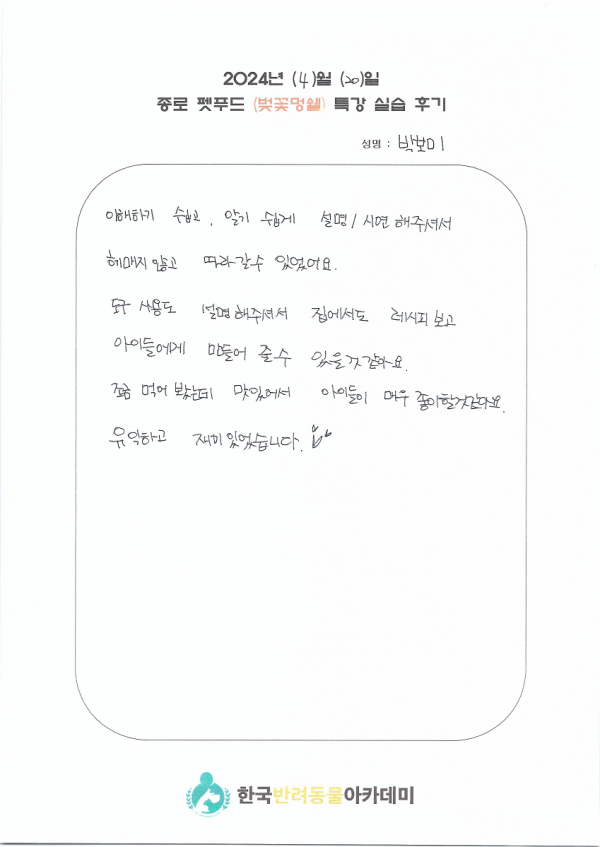 2024년 (4)월 (20)일
종로 펫푸드 (벚꽃멍쉘) 특강 실습 후기
성명 : 박보미
이해하기 쉽고, 알기 쉽게 설명/시연 해주셔서
헤매지 않고 따라갈수 있었어요.
도구 사용도 설명해주셔서 집에서도 레시피 보고
아이들에게 만들어 줄수 있을것같아요.
조금 먹어 봤는데 맛있어서 아이들이 매우 좋아할것같아요.
유익하고 재미있었습니다.
한국반려동물아카데미